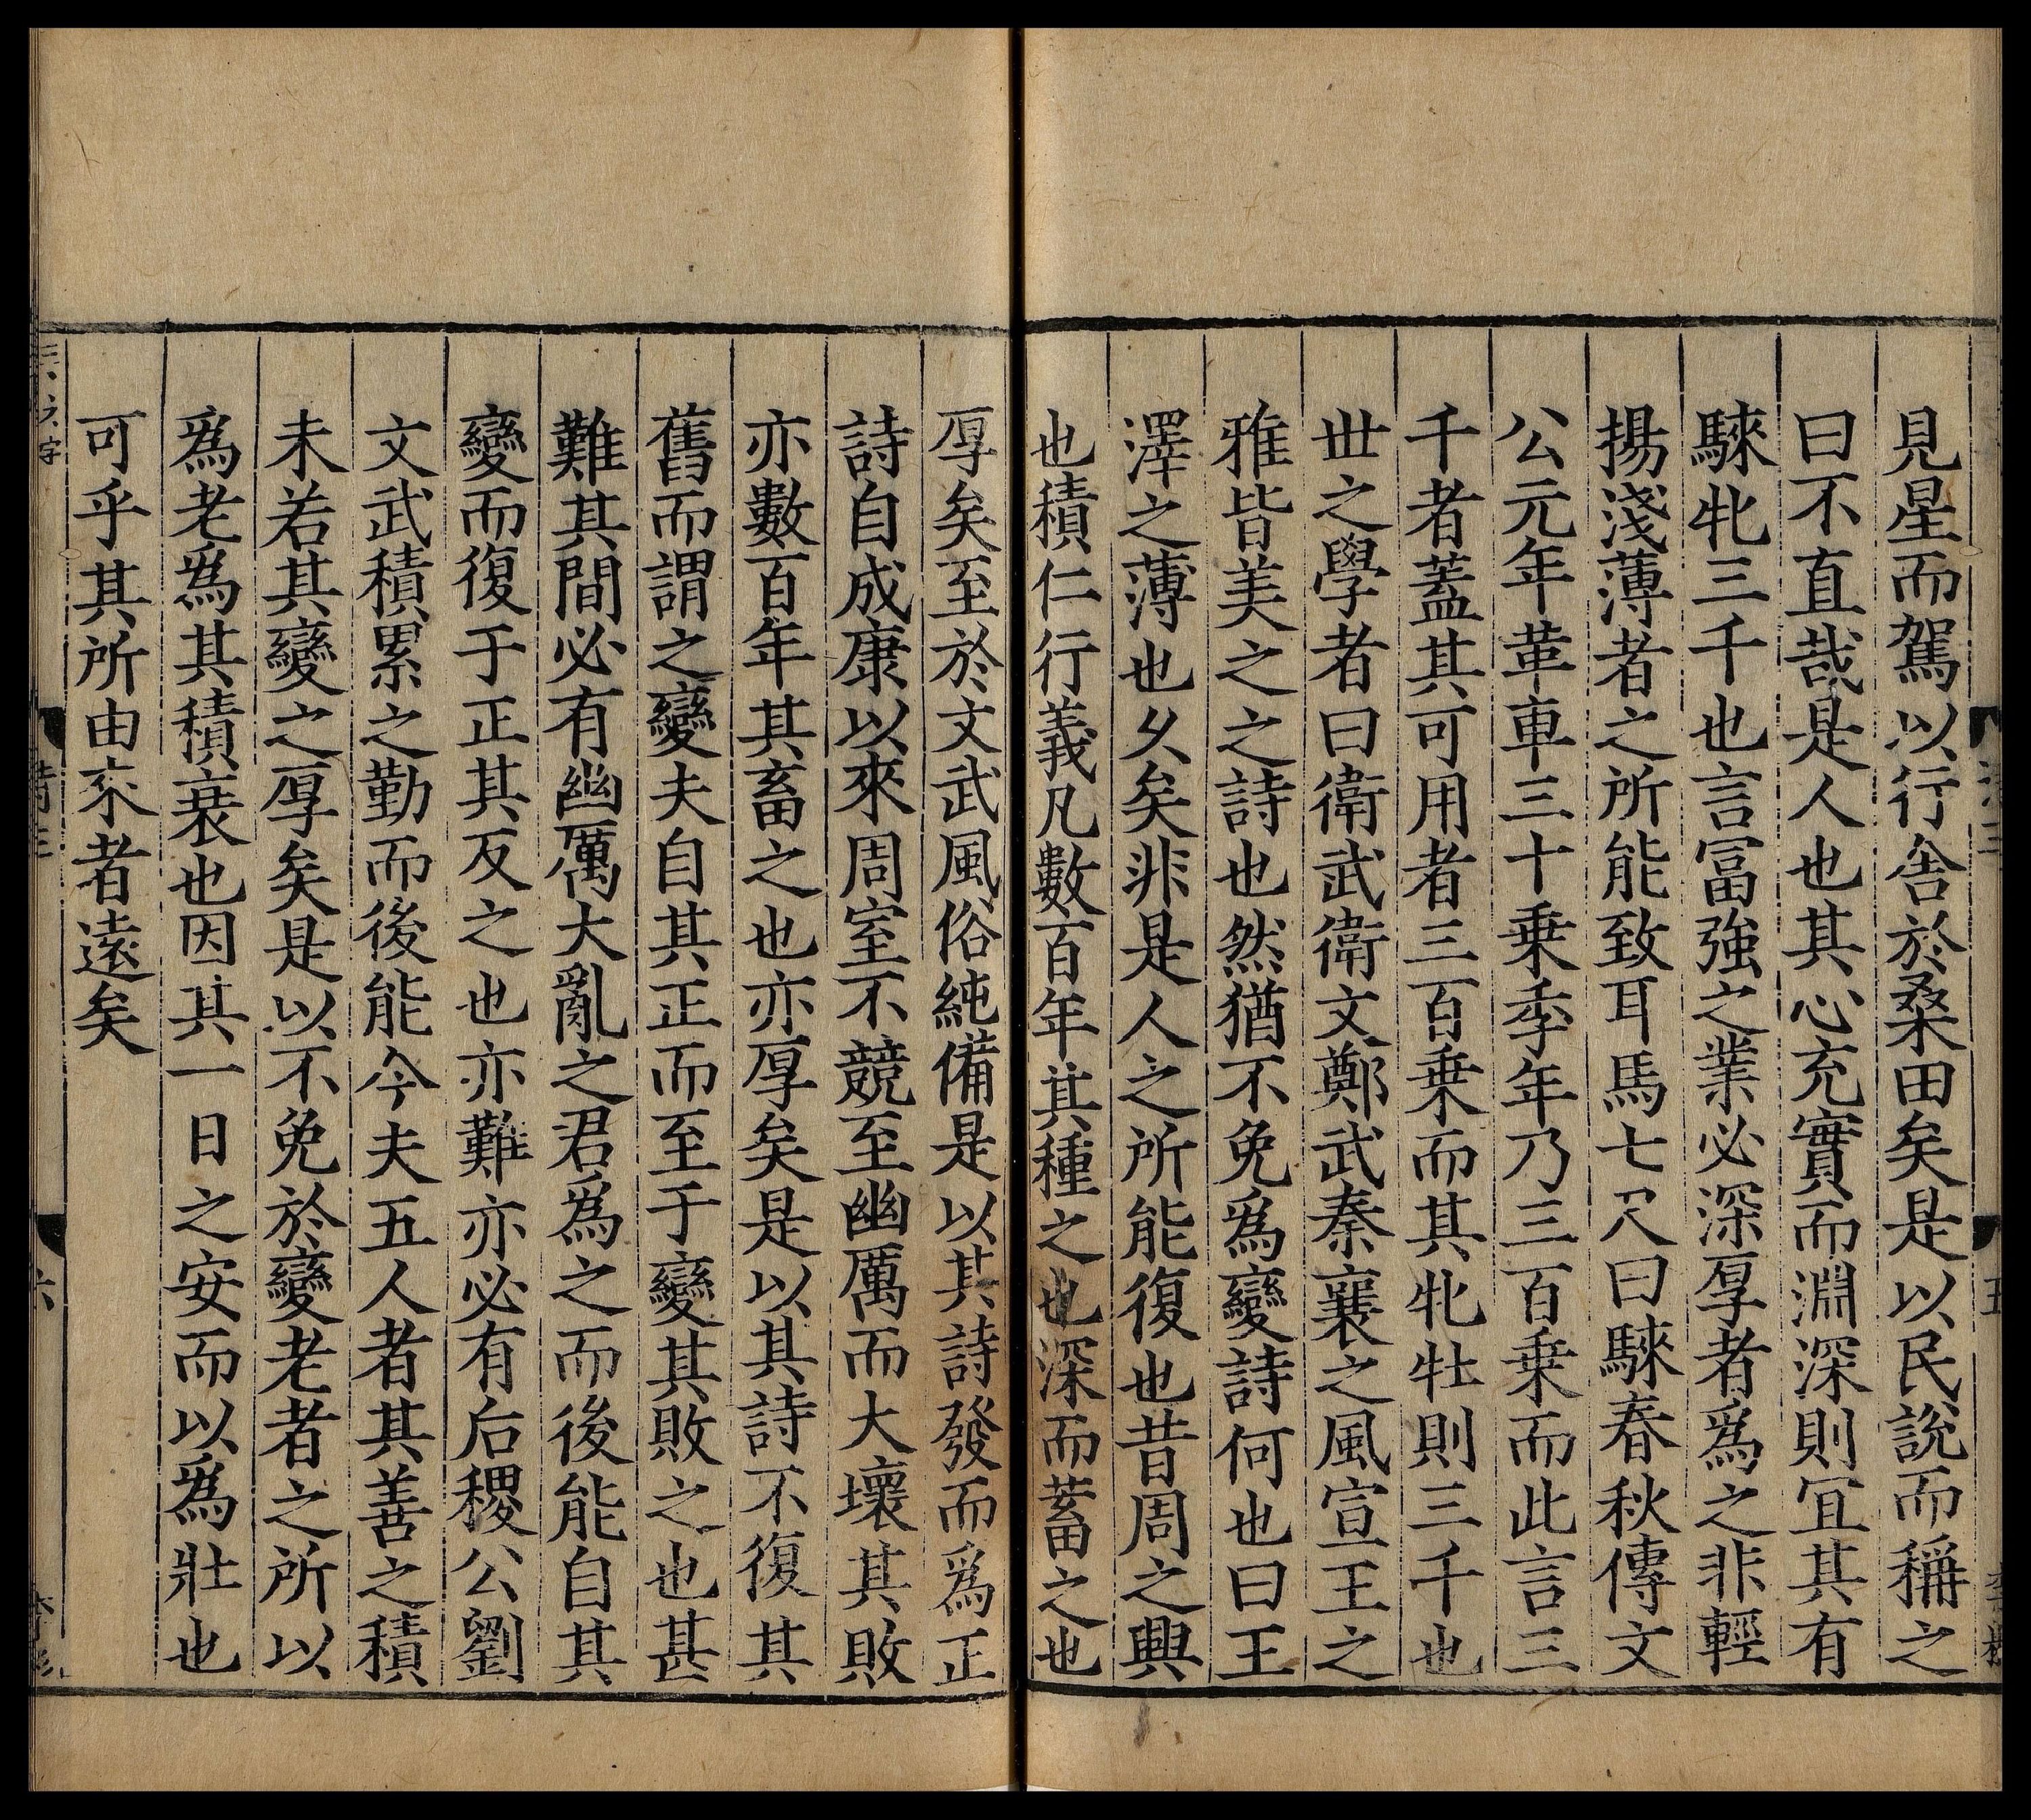 見星而駕以行舎於桑田矣是以民説而稱之
曰不直哉是人也其心充實而淵深則冝其有
騋牝三千也言冨強之業必深厚者爲之非輕
揚淺薄者之所能致耳馬七尺曰騋春秋傳文
公元年革車三十乗季年乃三百乗而此言三
千者蓋其可用者三百乗而其牝牡則三千也
丗之學者曰衛武衛文鄭武秦襄之風宣王之
雅皆美之之詩也然猶不免爲變詩何也曰王
澤之薄也乆矣非是人之所能復也昔周之興
也積仁行義凡數百年其種之也深而蓄之也
厚矣至於文武風俗純備是以其詩發而爲正
詩自成康以來周室不競至幽厲而大壞其敗
亦數百年其畜之也亦厚矣是以其詩不復其
舊而謂之變夫自其正而至于變其敗之也甚
難其間必有幽厲大亂之君爲之而後能自其
變而復于正其反之也亦難亦必有后稷公劉
文武積累之勤而後能今夫五人者其善之積
未若其變之厚矣是以不免於變老者之所以
爲老爲其積衰也因其一日之安而以爲壯也
可乎其所由來者遠矣